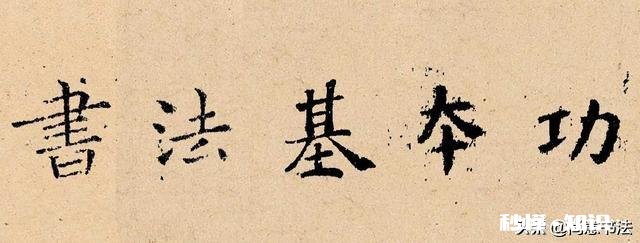 書法基本功
知识
头条 @ 书法